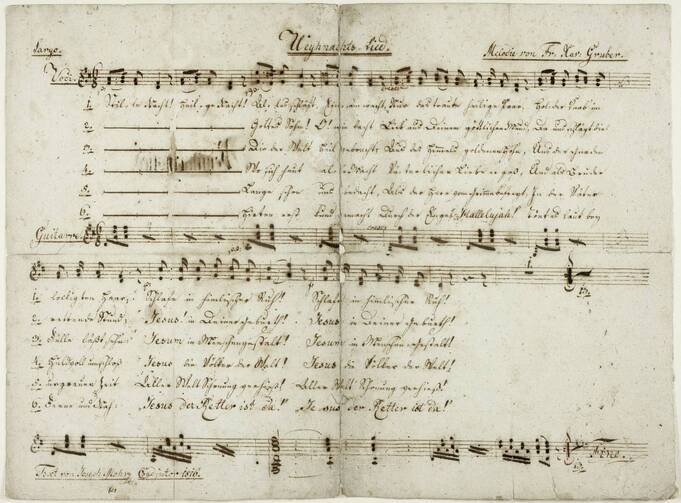 Largo. Weyhnachts-Lied. Melodie von Fr. Xav. Gruber.
Voce.
1. Stille Nacht! Heilige Nacht! Alles schläft, Eins wacht, Nur das traute heilige Paar. Holder Knab' im
2. Gottes Sohn! O! wie lacht Lieb' aus Deinem göttlichen Mund, Da uns schlägt die
3. Die der Welt Heil gebracht, Aus des Himmels goldenen Höh'n, Aus der Gnaden
4. Wo sich heut alle Macht Väterlicher Liebe ergoß, Und als Bruder
5. Lange schon uns bedacht, Als der Herr vom Grimme befreyt, In der Väter
6. Hirten erst kund gemacht Durch der Engel Hallelujah! tönt es laut bey
Guitarre.
1. lockigten Haar; Schlafe in himlischer Ruh! Schlafe in himlischer Ruh!
2. rettende Stund; Jesus! in Deiner Geburth! Jesus in Deiner Geburth!
3. Fülle läßt seh'n: Jesum in Menschengestalt! Jesum in Menschengestalt!
4. huldvoll umschloß Jesus die Völker der Welt! Jesus die Völker der Welt!
5. urgrauer Zeit Aller Welt Schonung verhieß! Aller Welt Schonung verhieß!
6. Ferne und Nah: "Jesus der Retter ist da!" "Jesus der Retter ist da!"
Fine.
Text von Joseph Mohr Coadjutor 1816.